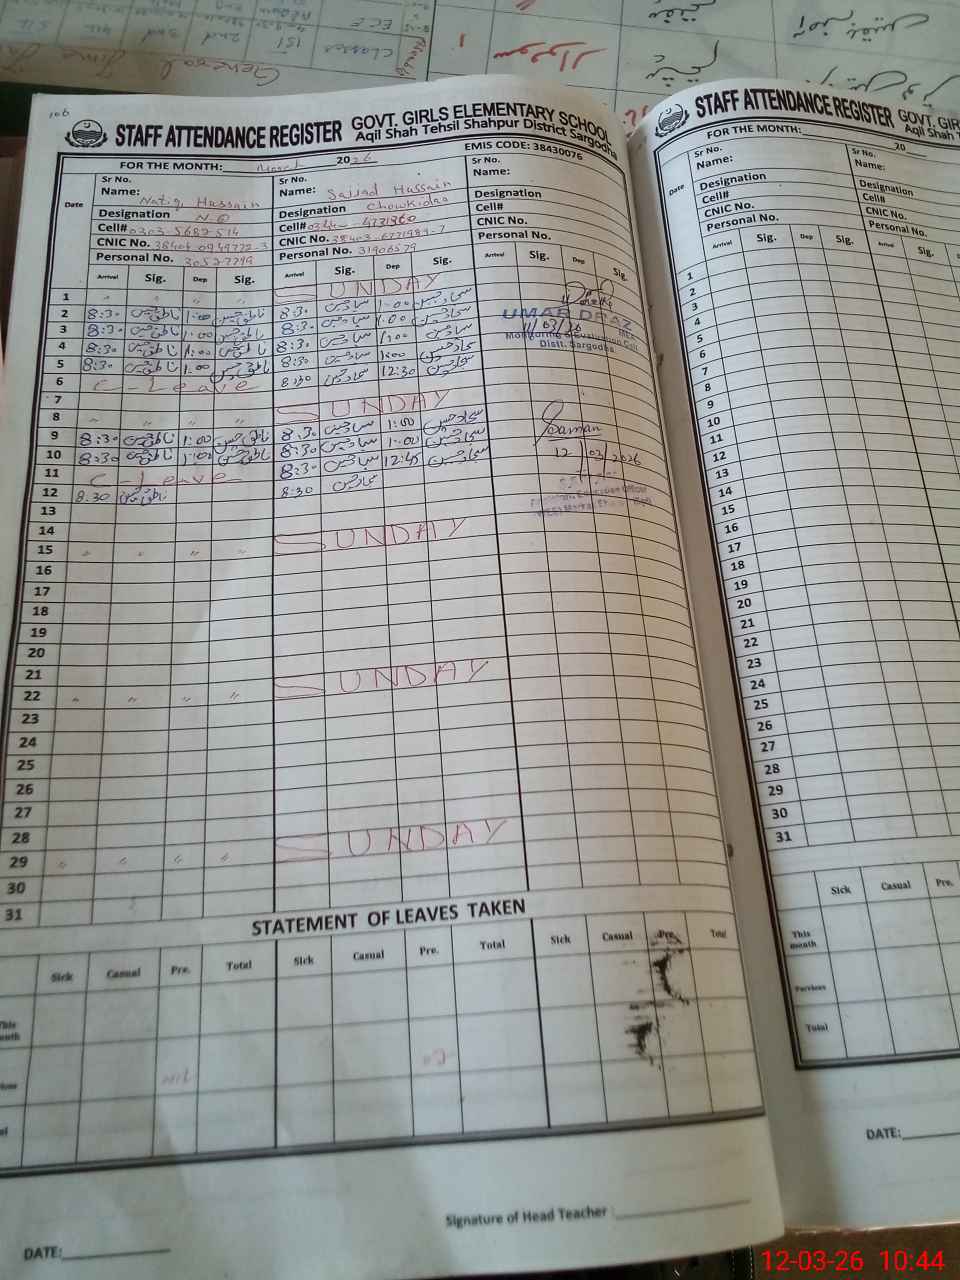 General Time Ta
classes
ECE
1st
2nd
3rd
4th
5th
106
STAFF ATTENDANCE REGISTER GOVT. GIRLS ELEMENTARY SCHOOL
Aqil Shah Tehsil Shahpur District Sargodha
EMIS CODE: 38430076
FOR THE MONTH: March 2026
Date
Sr No. Sr No. Sr No.
Name: Natiq Hussain Name: Sajjad Hussain Name:
Designation N.Q Designation Chowkidar Designation
Cell# 0303-5682514 Cell# Cell#
CNIC No. 38404-0949772-3 CNIC No. 38403-6731989-7 CNIC No.
Personal No. 30527799 Personal No. 31906579 Personal No.
Arrival Sig. Dep Sig. Arrival Sig. Dep Sig. Arrival Sig. Dep Sig.
1 " " " " SUNDAY
2 8:30 ناطق حسین 1:00 ناطق حسین 8:30 سجاد حسین 1:00 سجاد حسین
3 8:30 ناطق حسین 1:00 ناطق حسین 8:30 سجاد حسین 1:00 سجاد حسین
4 8:30 ناطق حسین 1:00 ناطق حسین 8:30 سجاد حسین 1:00 سجاد حسین
5 8:30 ناطق حسین 1:00 ناطق حسین 8:30 سجاد حسین 1:00 سجاد حسین
6 C-Leave 8:30 سجاد حسین 12:30 سجاد حسین
7
8 " " " " SUNDAY
9 8:30 ناطق حسین 1:00 ناطق حسین 8:30 سجاد حسین 1:00 سجاد حسین
10 8:30 ناطق حسین 1:00 ناطق حسین 8:30 سجاد حسین 1:00 سجاد حسین
11 C-Leave 8:30 سجاد حسین 12:45 سجاد حسین
12 8:30 ناطق حسین 8:30 سجاد حسین
13
14
15 " " " " SUNDAY
16
17
18
19
20
21
22 " " " " SUNDAY
23
24
25
26
27
28
29 " " " " SUNDAY
30
31
UMAR DRAZ
11/03/26
Monitoring & Evaluation Cell
Distt. Sargodha
12/03/2026
STATEMENT OF LEAVES TAKEN
Sick Casual Pre. Total Sick Casual Pre. Total Sick Casual Pre. Total
This month
Total
Signature of Head Teacher :
DATE:
STAFF ATTENDANCE REGISTER GOVT. GIR
Aqil Shah T
FOR THE MONTH: 20
Date
Sr No. Sr No.
Name: Name:
Designation Designation
Cell# Cell#
CNIC No. CNIC No.
Personal No. Personal No.
Arrival Sig. Dep Sig. Arrival Sig.
1
2
3
4
5
6
7
8
9
10
11
12
13
14
15
16
17
18
19
20
21
22
23
24
25
26
27
28
29
30
31
Sick Casual Pre.
This month
Pervious
Total
DATE:
12-03-26 10:44